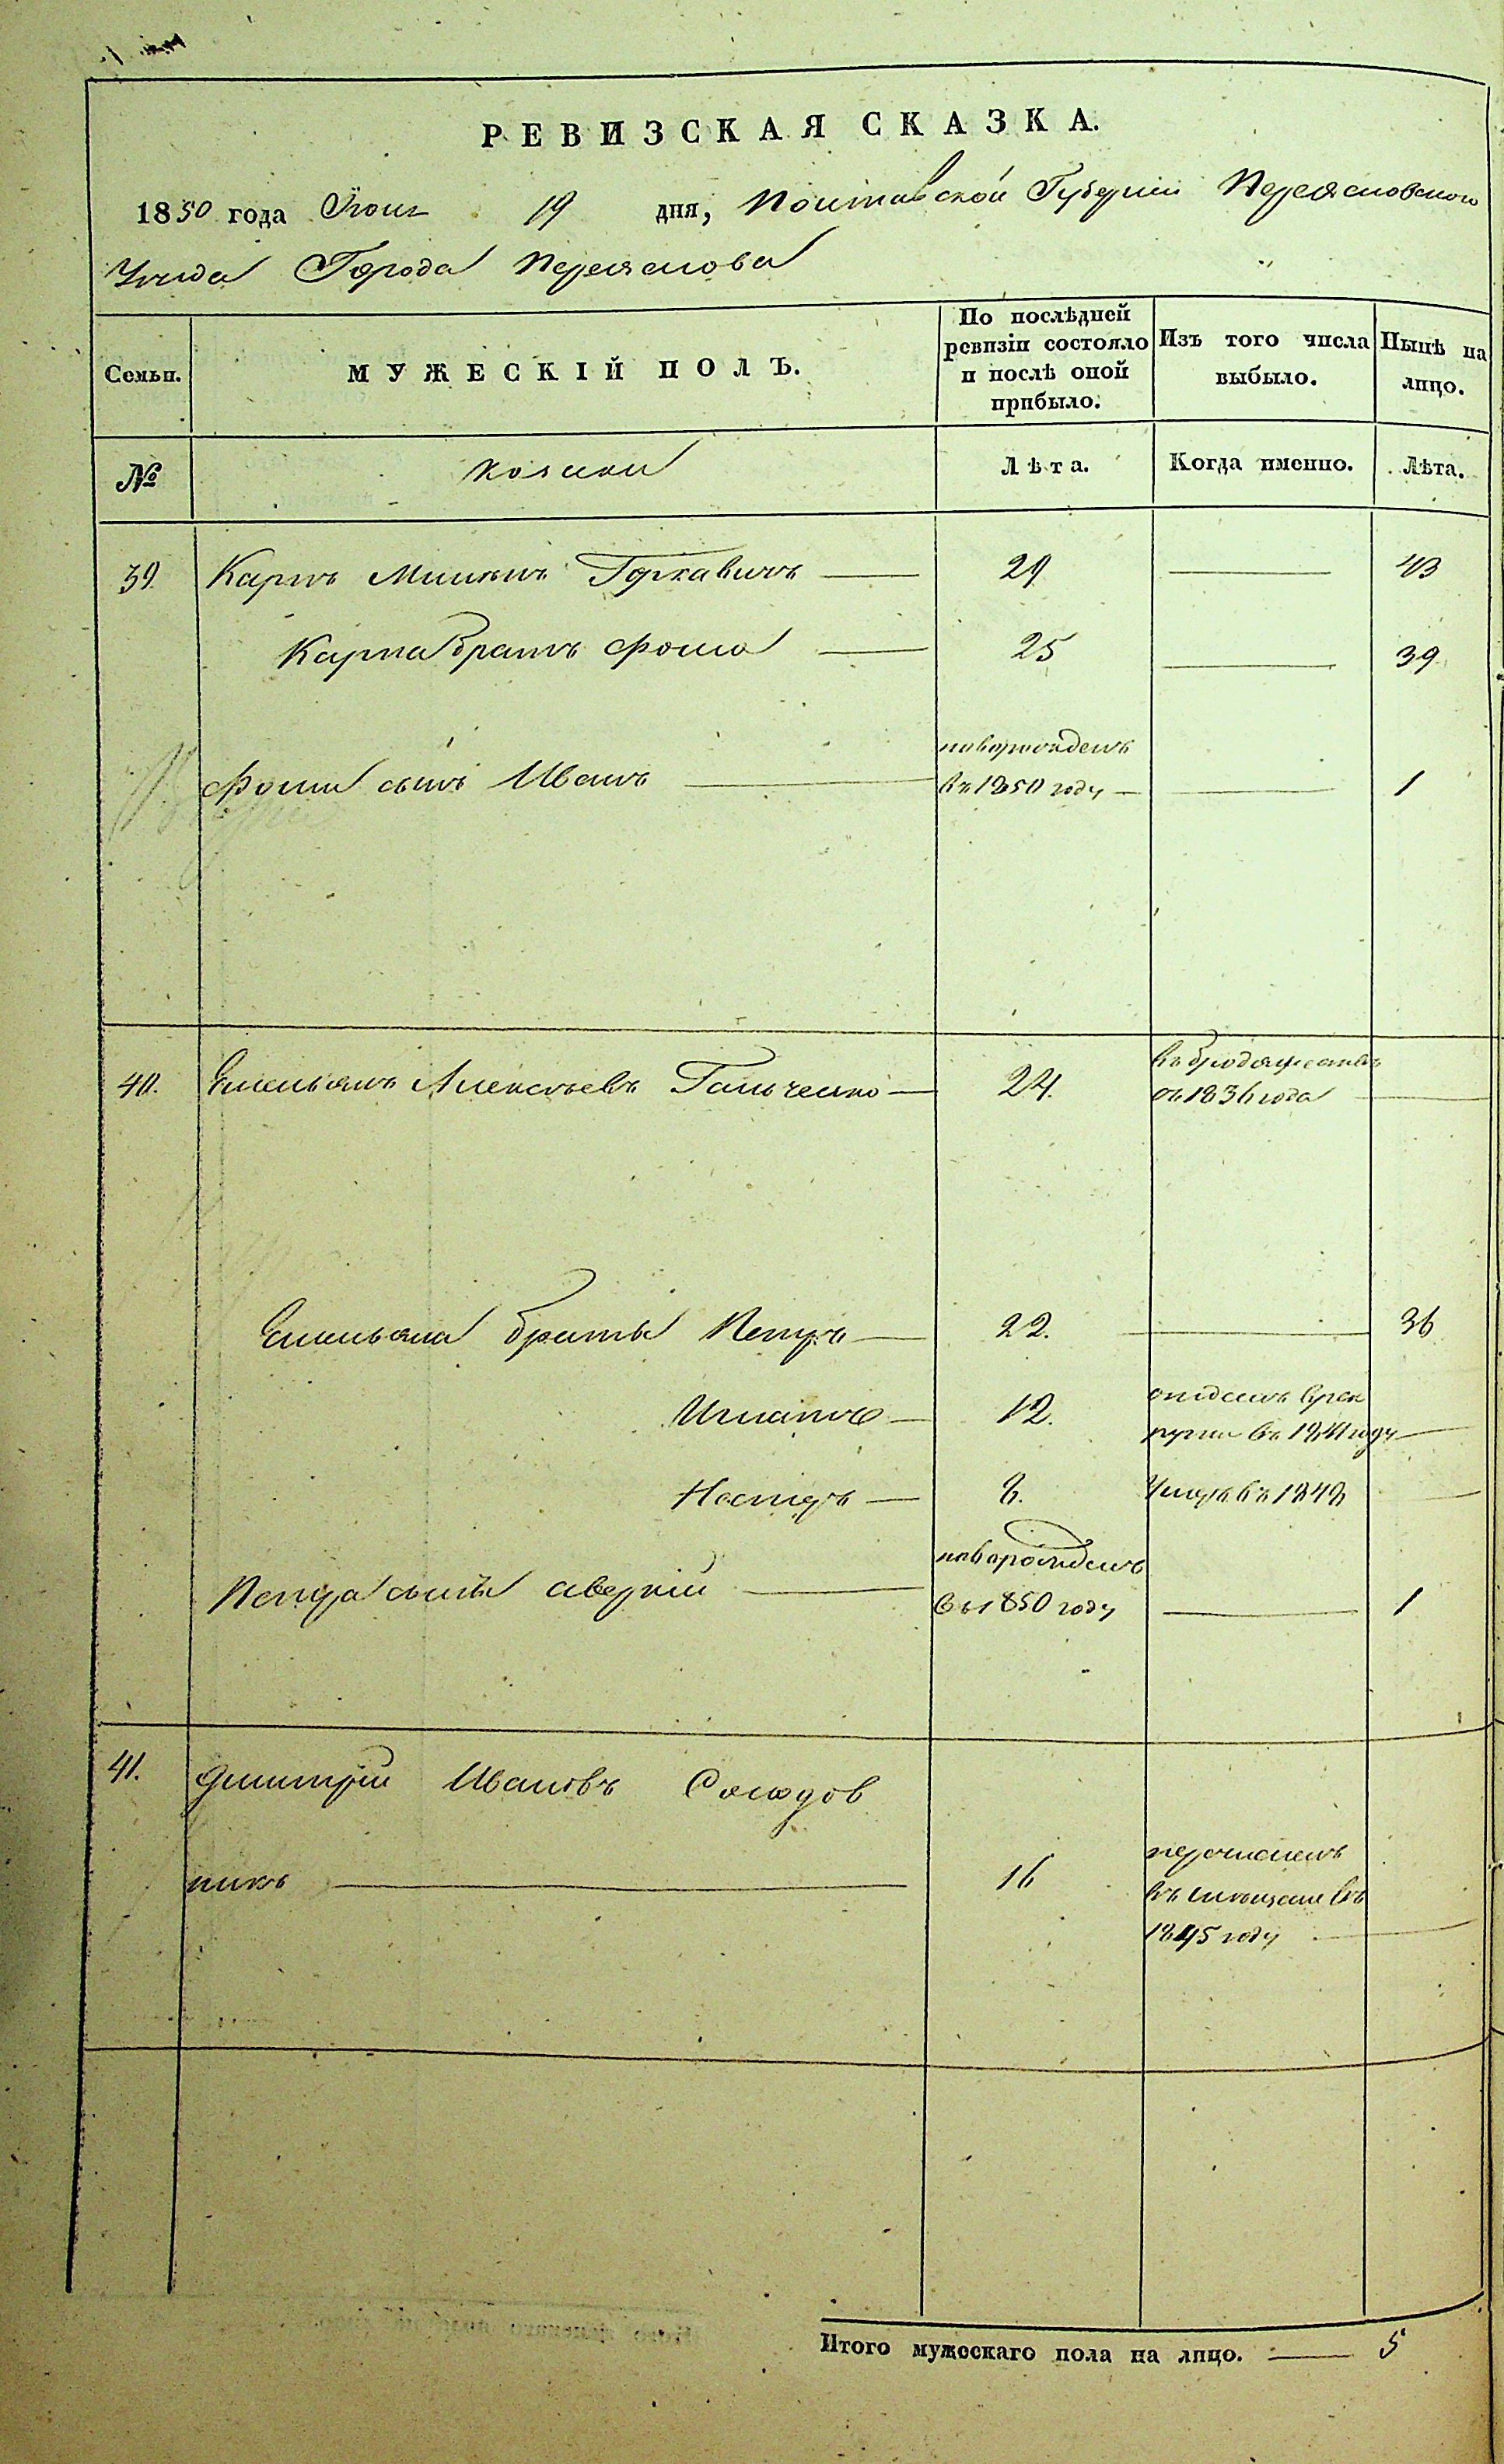 РЕВИЗСКАЯ СКАЗКА.
1850 года Іюня 19 дня, Полтавской Губерніи Переяславского
Уезда Города Переяслова
Семьи. МУЖЕСКІЙ ПОЛЪ. По послѣдней ревизіи состояло и послѣ оной прибыло. Изъ того числа выбыло. Нынѣ на лицо.
№ Козаки Лѣта. Когда именно. Лѣта.
39. Карпъ 29 43
Карпа Братъ Фома 25 39
Фомы сынъ Иванъ новорожденъ въ 1850 году 1
40. Емельянъ Алексѣевъ Гальченко 24. въ бродяжествѣ съ 1836 года
Емельяна братья Петръ 22. 36
Игнатъ 12. отданъ врек
руты въ 1841 году
Несторъ 8. Умеръ въ 1848
Петра сынъ Аверкій новорожденъ въ 1850 году 1
41. Дмитрій Ивановъ Солодов
никъ 16 перечисленъ
въ мещане въ
1845 году
Итого мужескаго пола на лицо. 5